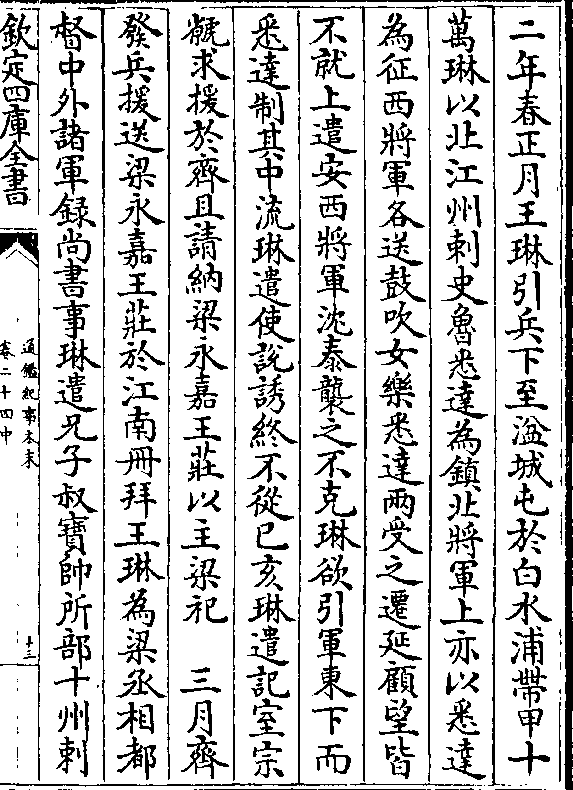 二年春正月王琳引兵下至湓城屯於白水浦帶甲十
萬琳以北江州刺史魯悉達為鎮北將軍上亦以悉達
為征西將軍各送鼓吹女樂悉達兩受之遷延顧望皆
不就上遣安西將軍沈泰襲之不克琳欲引軍東下而
悉達制其中流琳遣使說誘終不從已亥琳遣記室宗
虩求援於齊且請納梁永嘉王莊以主梁祀　三月齊
發兵援送梁永嘉王莊於江南冊拜王琳為梁丞相都
督中外諸軍録尚書事琳遣兄子叔寶帥所部十州刺
欽定四庫全書
通鑑紀事本末
卷二十四中
十三